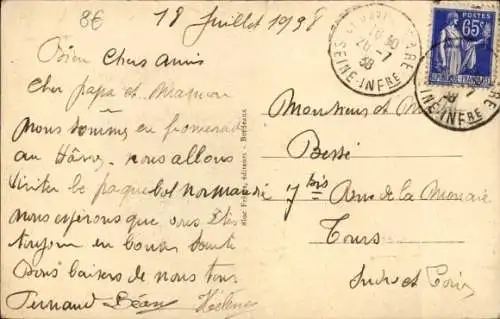 8€
18 Juillet 1938
Bien Chers amis
Cher papa et Maman
Nous sommes en promenade
au Hâvre. nous allons
visiter le paquebot normandie
nous espérons que vous êtes
toujours en bonne santé
Bons baisers de nous tous
Fernand Déan Hélène
Monsieur et
Bessé
7 bis Rue de la
Tours
Indre et Loire
POSTES
65c
RÉPUBLIQUE FRANÇAISE
HAVRE GARE
20 30
20-7
38
SEINE-INFRE
éditeurs - Bordeaux